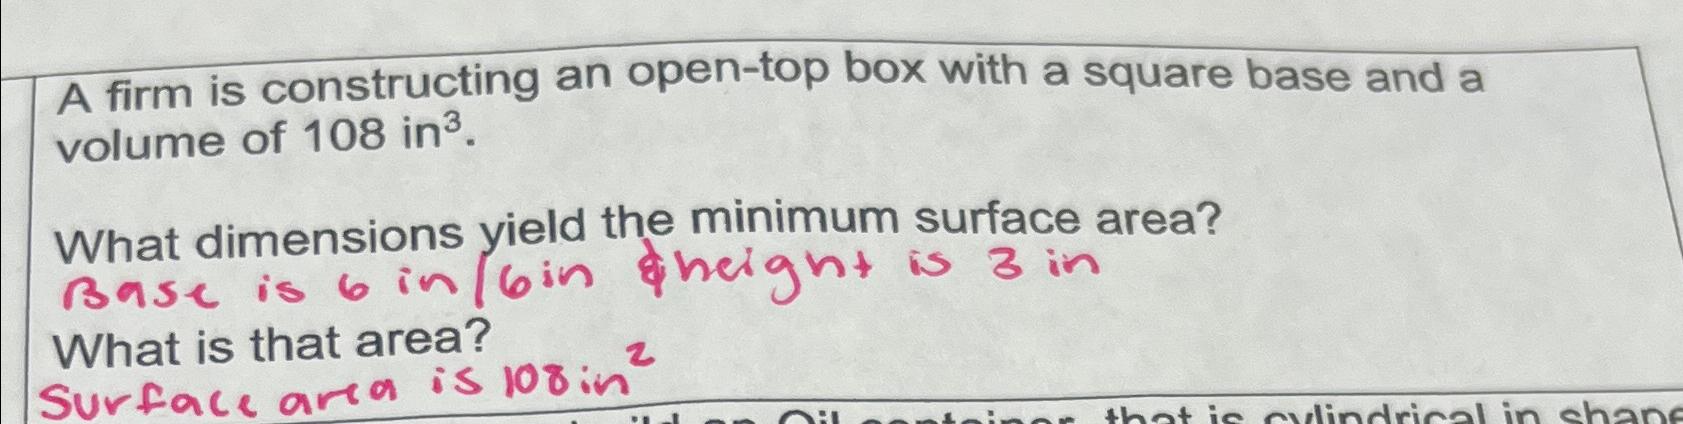 A firm is constructing an open-top box with a square base and a
volume of 108 in³.
What dimensions yield the minimum surface area?
Base is 6 in/6in & height is 3 in
What is that area?
Surface area is 108in²
Oil container that is cylindrical in shape